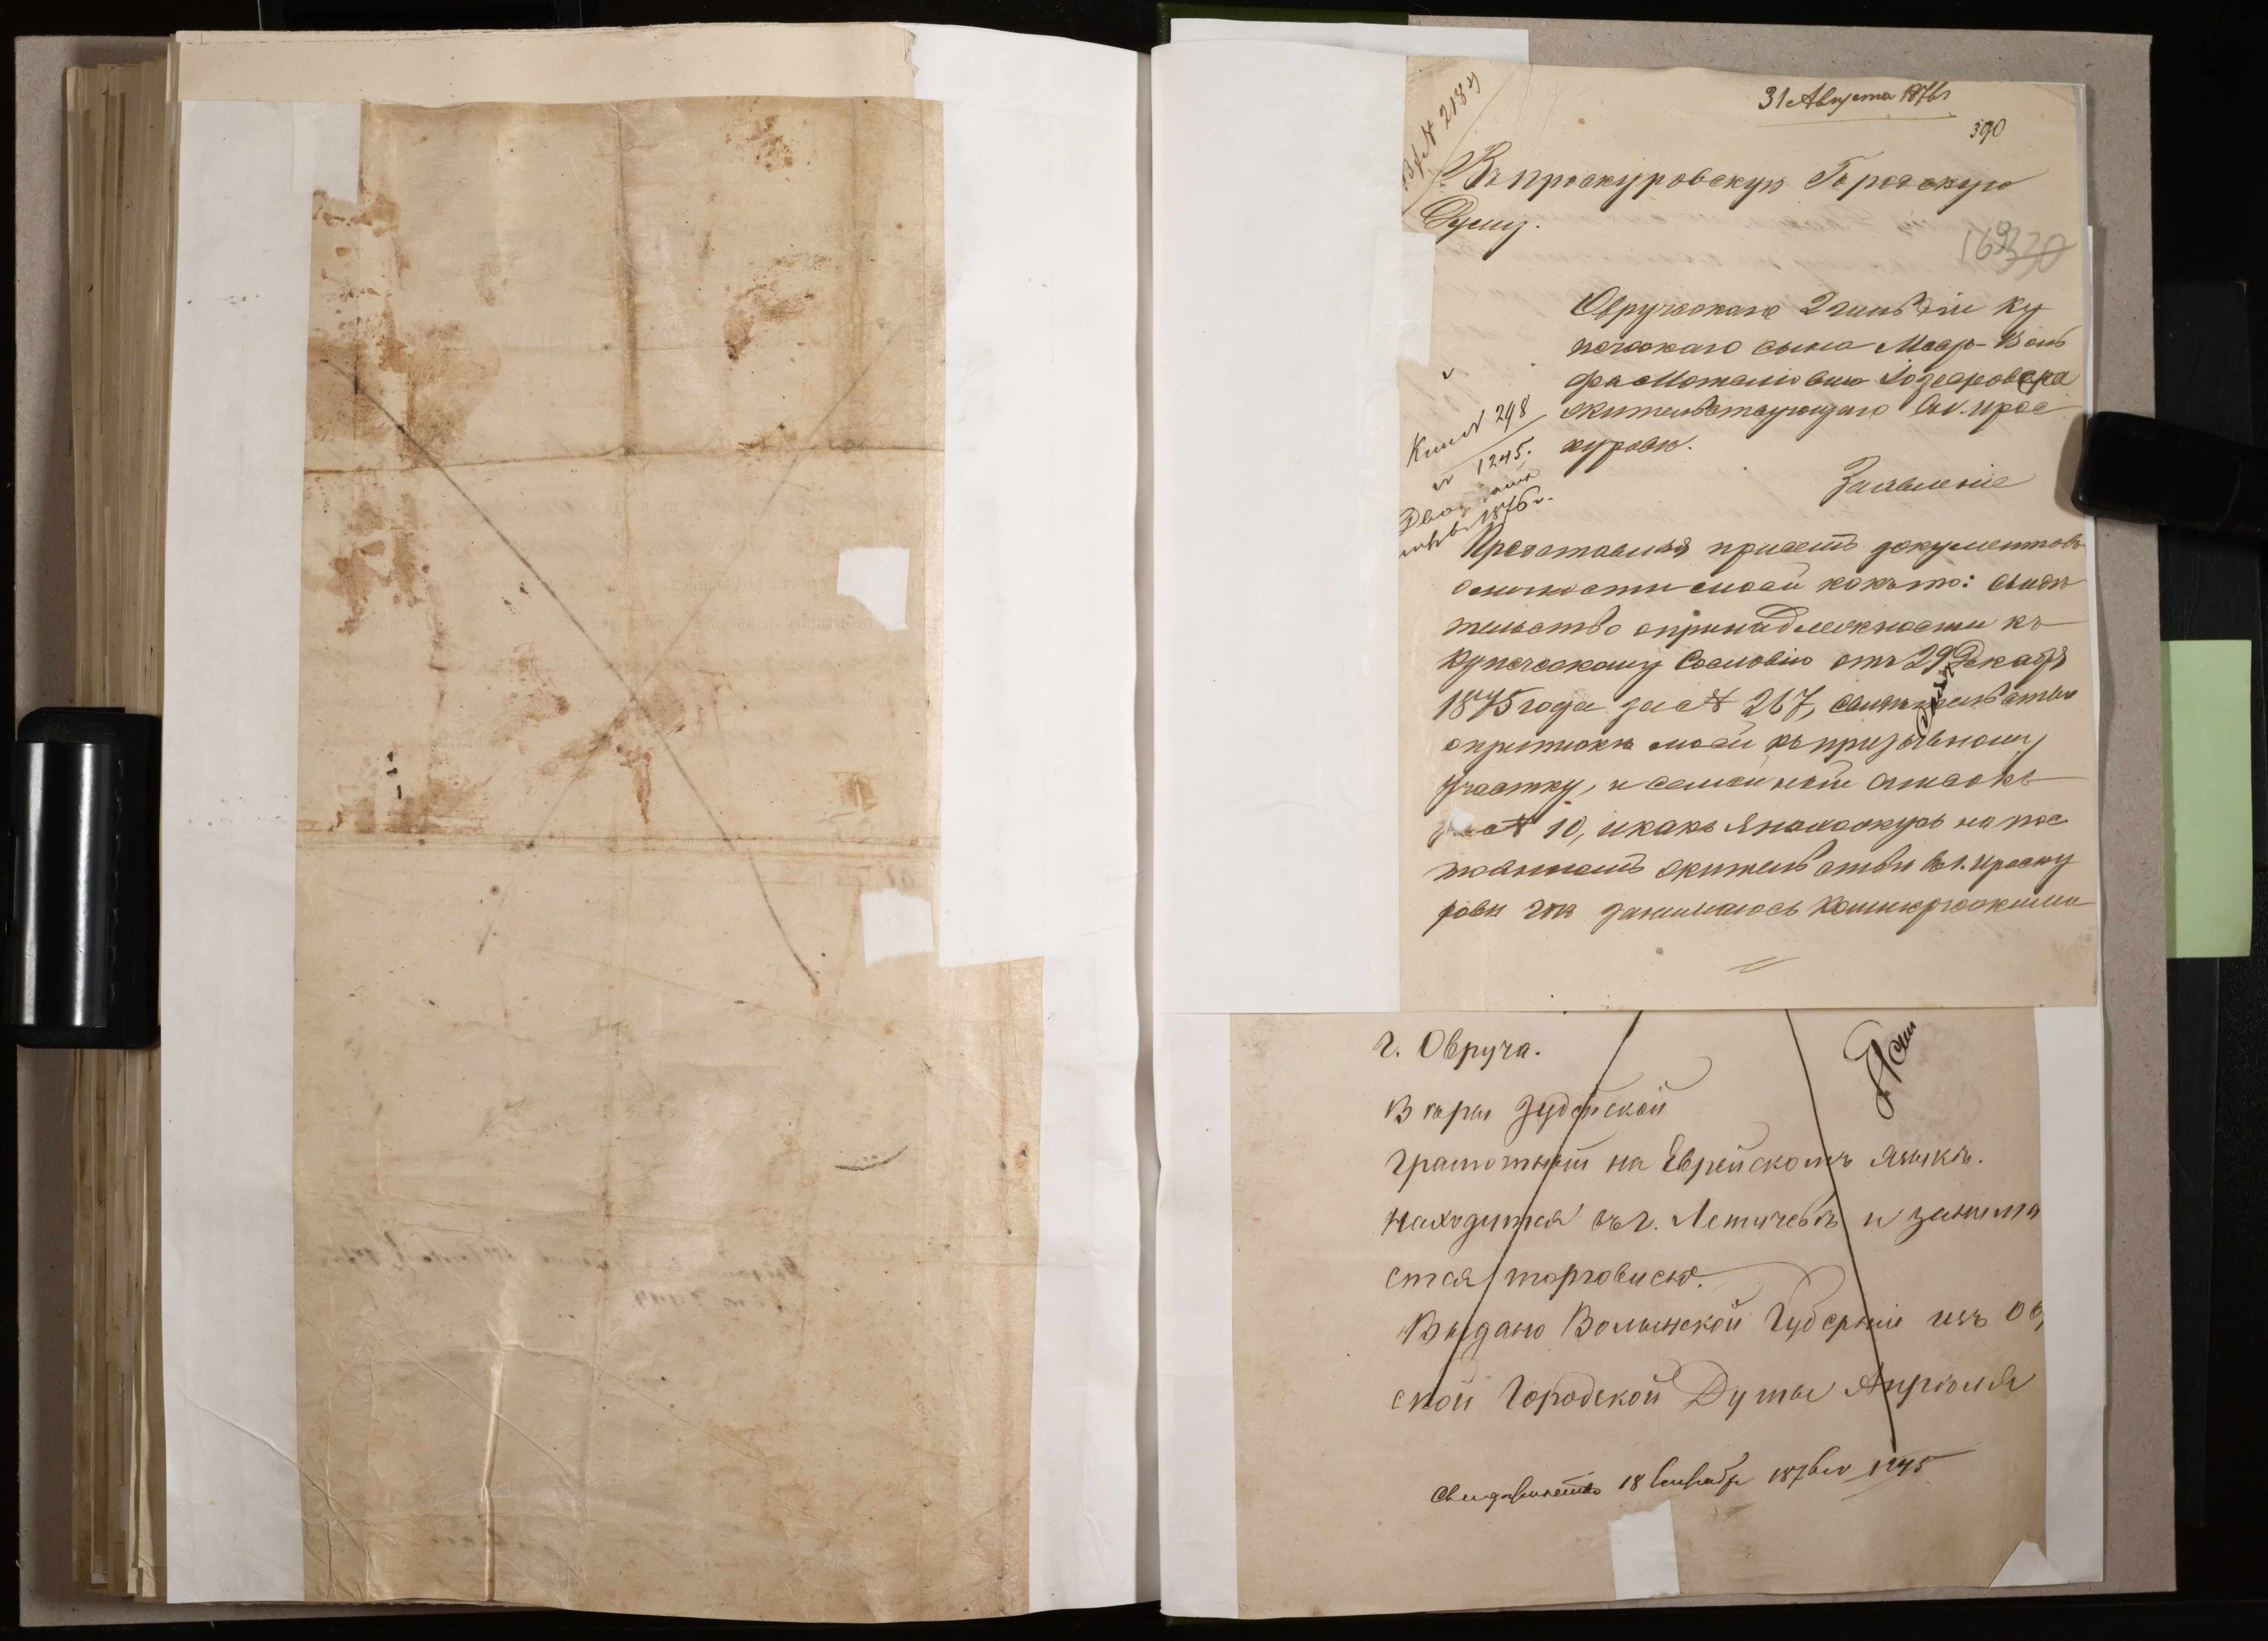 31 Августа 1876 г
390
Вх № 2184
Въ проскуровскую Городскую
Думу.
169 330
Овручскаго 2 гильдіи ку
печескаго сына Меер-Воль
фа Мотелиовича
жительствующаго въ г. прос
куровѣ.
№ 298
1245.
1876 г.
Заявленіе
Представляя при семъ документовъ
о личности моей какъ то: свидѣ
тельство о принадлежности къ
купеческому Сословію отъ 29 Декабря
1875 года за № 267, свидѣтельство
о припискѣ моей къ призывному
участку, и семейный списокъ
за № 10, и какъ я нахожусь на пос
тоянномъ жительствѣ въ г. проску
ровѣ гдѣ занимаюсь Комерческими
г. Овруча.
Вѣры Іудейской
грамотный на Еврейскомъ языкѣ.
Находится въ г. Летичевѣ и занима
ется торговлею.
Выдано Волынской Губерніи изъ Ов
ской Городской Думы Апрѣля
18 Сентября 1876 г 1245